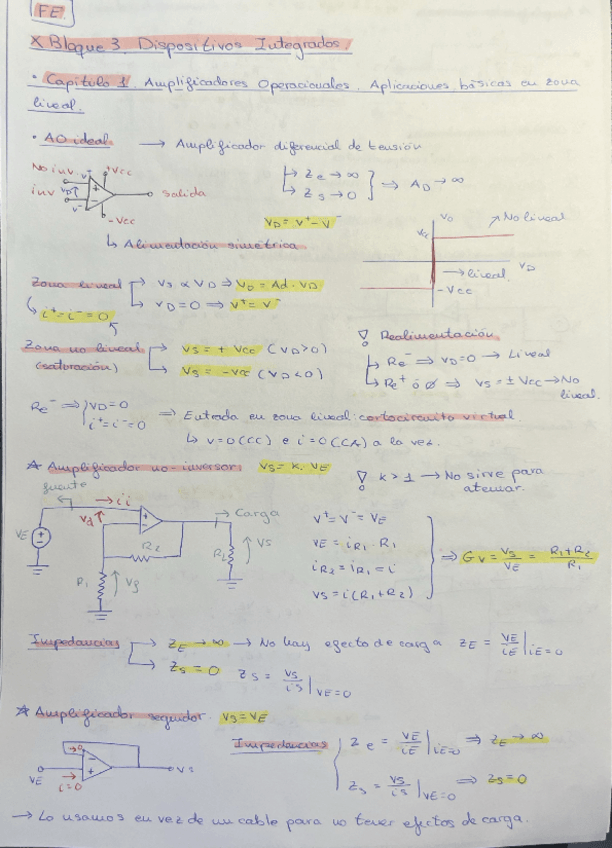 FE.
X Bloque 3. Dispositivos Integrados.
· Capítulo 1. Amplificadores Operacionales. Aplicaciones básicas en zona
lineal.
· AO ideal → Amplificador diferencial de tensión
No inv v⁻ +Vcc
inv VD↑ v⁻ salida
-Vcc
↳ Ze → ∞
↳ Zs → 0 } ⇒ AD → ∞
VD = V⁺ - V⁻
↳ Alimentación simétrica
VO
Vcc ↗ No lineal
VD
→ lineal
-Vcc
Zona lineal ↱ Vs ∝ VD ⇒ VD = Ad · VD
↳ VD = 0 ⇒ V⁺ = V⁻
↳ i⁺ = i⁻ = 0
Zona no lineal → Vs = + Vcc (VD > 0)
(saturación) → Vs = -Vcc (VD < 0)
! Realimentación
↳ Re⁻ ⇒ VD = 0 → Lineal
↳ Re⁺ ó ∅ ⇒ Vs = ± Vcc → No
lineal.
Re⁻ ⇒ { VD = 0
i⁺ = i⁻ = 0
⇒ Entrada en zona lineal: cortocircuito virtual.
↳ v = 0 (CC) e i = 0 (CA) a la vez.
☆ Amplificador no-inversor. Vs = k · VE
! k > 1 → No sirve para
atenuar.
fuente → ii
Vd↑ → Carga
VE R2 RL ↑ Vs
R1 ↑ Vf
V⁺ = V⁻ = VE
VE = iR1 · R1
iR2 = iR1 = i
Vs = i(R1 + R2)
⇒ Gv = Vs/VE = (R1 + R2)/R1
Impedancias → ZE → ∞ → No hay efecto de carga ZE = VE/iE |iE=0
→ Zs = 0 Zs = Vs/is |VE=0
☆ Amplificador seguidor. Vs = VE
→0
VE → i=0 Vs
Impedancias { Ze = VE/iE |iE=0 ⇒ ZE → ∞
Zs = Vs/is |VE=0 ⇒ Zs = 0
→ Lo usamos en vez de un cable para no tener efectos de carga.